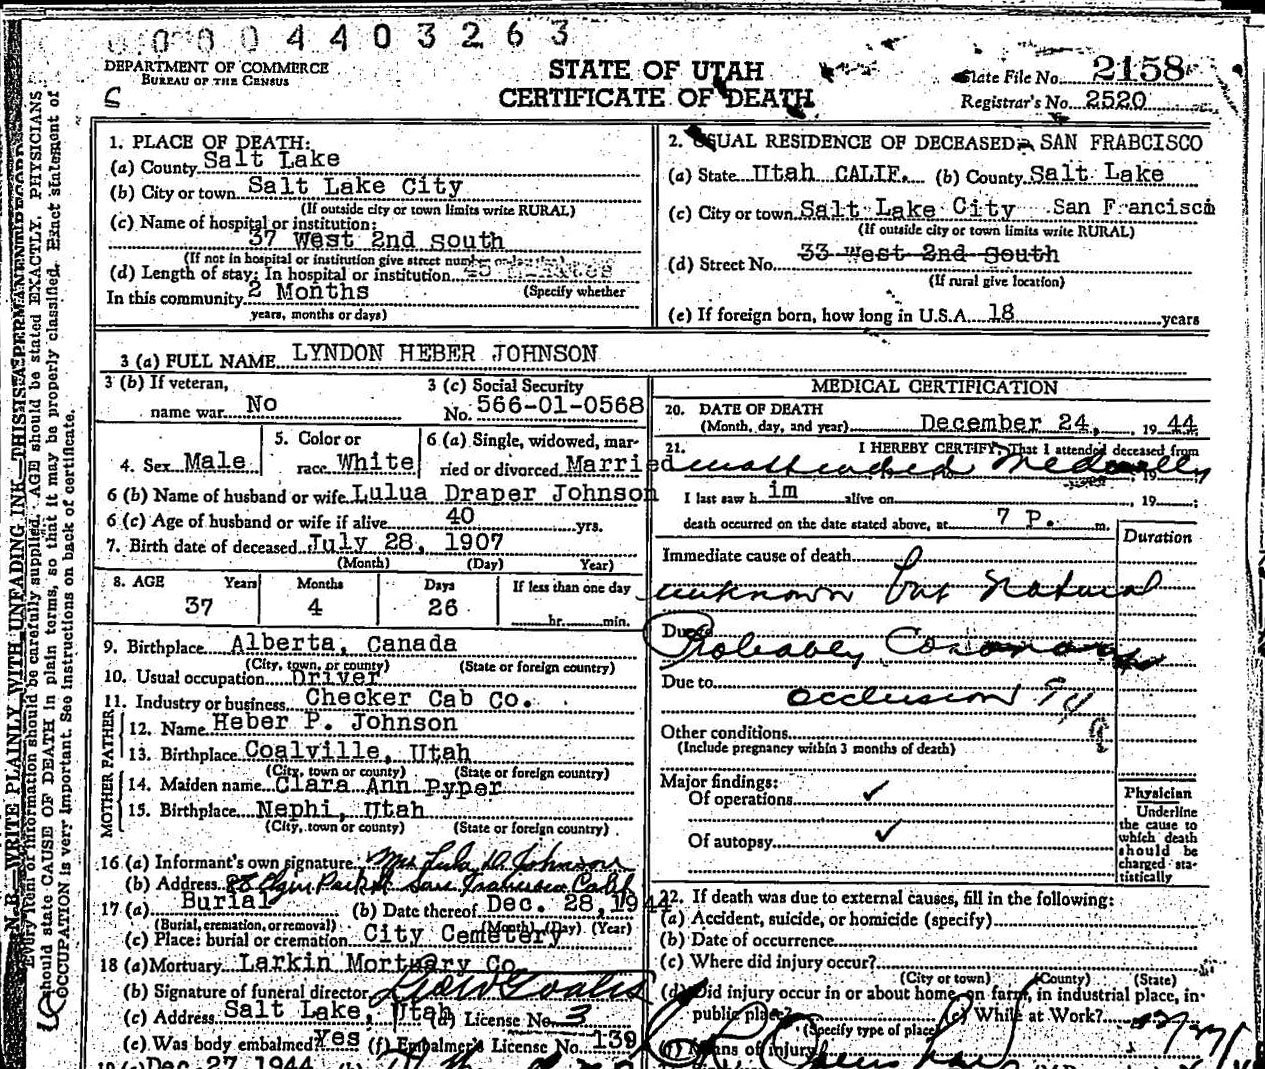 0 0 0 0 4 4 0 3 2 6 3
DEPARTMENT OF COMMERCE
BUREAU OF THE CENSUS
STATE OF UTAH
CERTIFICATE OF DEATH
State File No. 2158
Registrar's No. 2520
N. B.—WRITE PLAINLY WITH UNFADING INK—THIS IS A PERMANENT RECORD
Every item of information should be carefully supplied. AGE should be stated EXACTLY. PHYSICIANS
should state CAUSE OF DEATH in plain terms, so that it may be properly classified. Exact statement of
OCCUPATION is very important. See instructions on back of certificate.
1. PLACE OF DEATH:
(a) County Salt Lake
(b) City or town Salt Lake City
(If outside city or town limits write RURAL)
(c) Name of hospital or institution:
37 West 2nd South
(If not in hospital or institution give street number or location)
(d) Length of stay: In hospital or institution
In this community 2 Months (Specify whether
years, months or days)
2. USUAL RESIDENCE OF DECEASED: SAN FRABCISCO
(a) State Utah CALIF. (b) County Salt Lake
(c) City or town Salt Lake City San Francisco
(If outside city or town limits write RURAL)
(d) Street No. 33 West 2nd South
(If rural give location)
(e) If foreign born, how long in U.S.A. 18 years
3 (a) FULL NAME LYNDON HEBER JOHNSON
3 (b) If veteran,
name war No
3 (c) Social Security
No. 566-01-0568
4. Sex Male
5. Color or
race White
6 (a) Single, widowed, mar-
ried or divorced Married
6 (b) Name of husband or wife Lulua Draper Johnson
6 (c) Age of husband or wife if alive 40 yrs.
7. Birth date of deceased July 28, 1907
(Month) (Day) Year)
8. AGE Years Months Days If less than one day
37 4 26 hr. min.
9. Birthplace Alberta, Canada
(City, town, or county) (State or foreign country)
10. Usual occupation Driver
11. Industry or business Checker Cab Co.
FATHER
12. Name Heber P. Johnson
13. Birthplace Coalville, Utah
(City, town or county) (State or foreign country)
MOTHER
14. Maiden name Clara Ann Pyper
15. Birthplace Nephi, Utah
(City, town or county) (State or foreign country)
16 (a) Informant's own signature Mrs Lula D. Johnson
(b) Address 88 Elgin Park St San Francisco Calif
17 (a) Burial (b) Date thereof Dec. 28, 1944
(Burial, cremation, or removal) (Month) (Day) (Year)
(c) Place: burial or cremation City Cemetery
18 (a) Mortuary Larkin Mortuary Co
(b) Signature of funeral director
(c) Address Salt Lake, Utah (d) License No. 3
(e) Was body embalmed? Yes (f) Embalmer's License No. 139
Dec. 27, 1944
MEDICAL CERTIFICATION
20. DATE OF DEATH
(Month, day, and year) December 24, 19 44
21. I HEREBY CERTIFY, That I attended deceased from
unattended Medically 19
I last saw h im alive on 19
death occurred on the date stated above, at 7 P. m.
Duration
Immediate cause of death
unknown but Natural
Due to
Probably Coronary
Due to
occlusion 94
Other conditions
(Include pregnancy within 3 months of death)
Major findings:
Of operations ✓
Of autopsy ✓
Physician
Underline
the cause to
which death
should be
charged sta-
tistically
22. If death was due to external causes, fill in the following:
(a) Accident, suicide, or homicide (specify)
(b) Date of occurrence
(c) Where did injury occur?
(City or town) (County) (State)
(d) Did injury occur in or about home, on farm, in industrial place, in
public place? (e) While at Work?
(Specify type of place)
(f) Means of injury